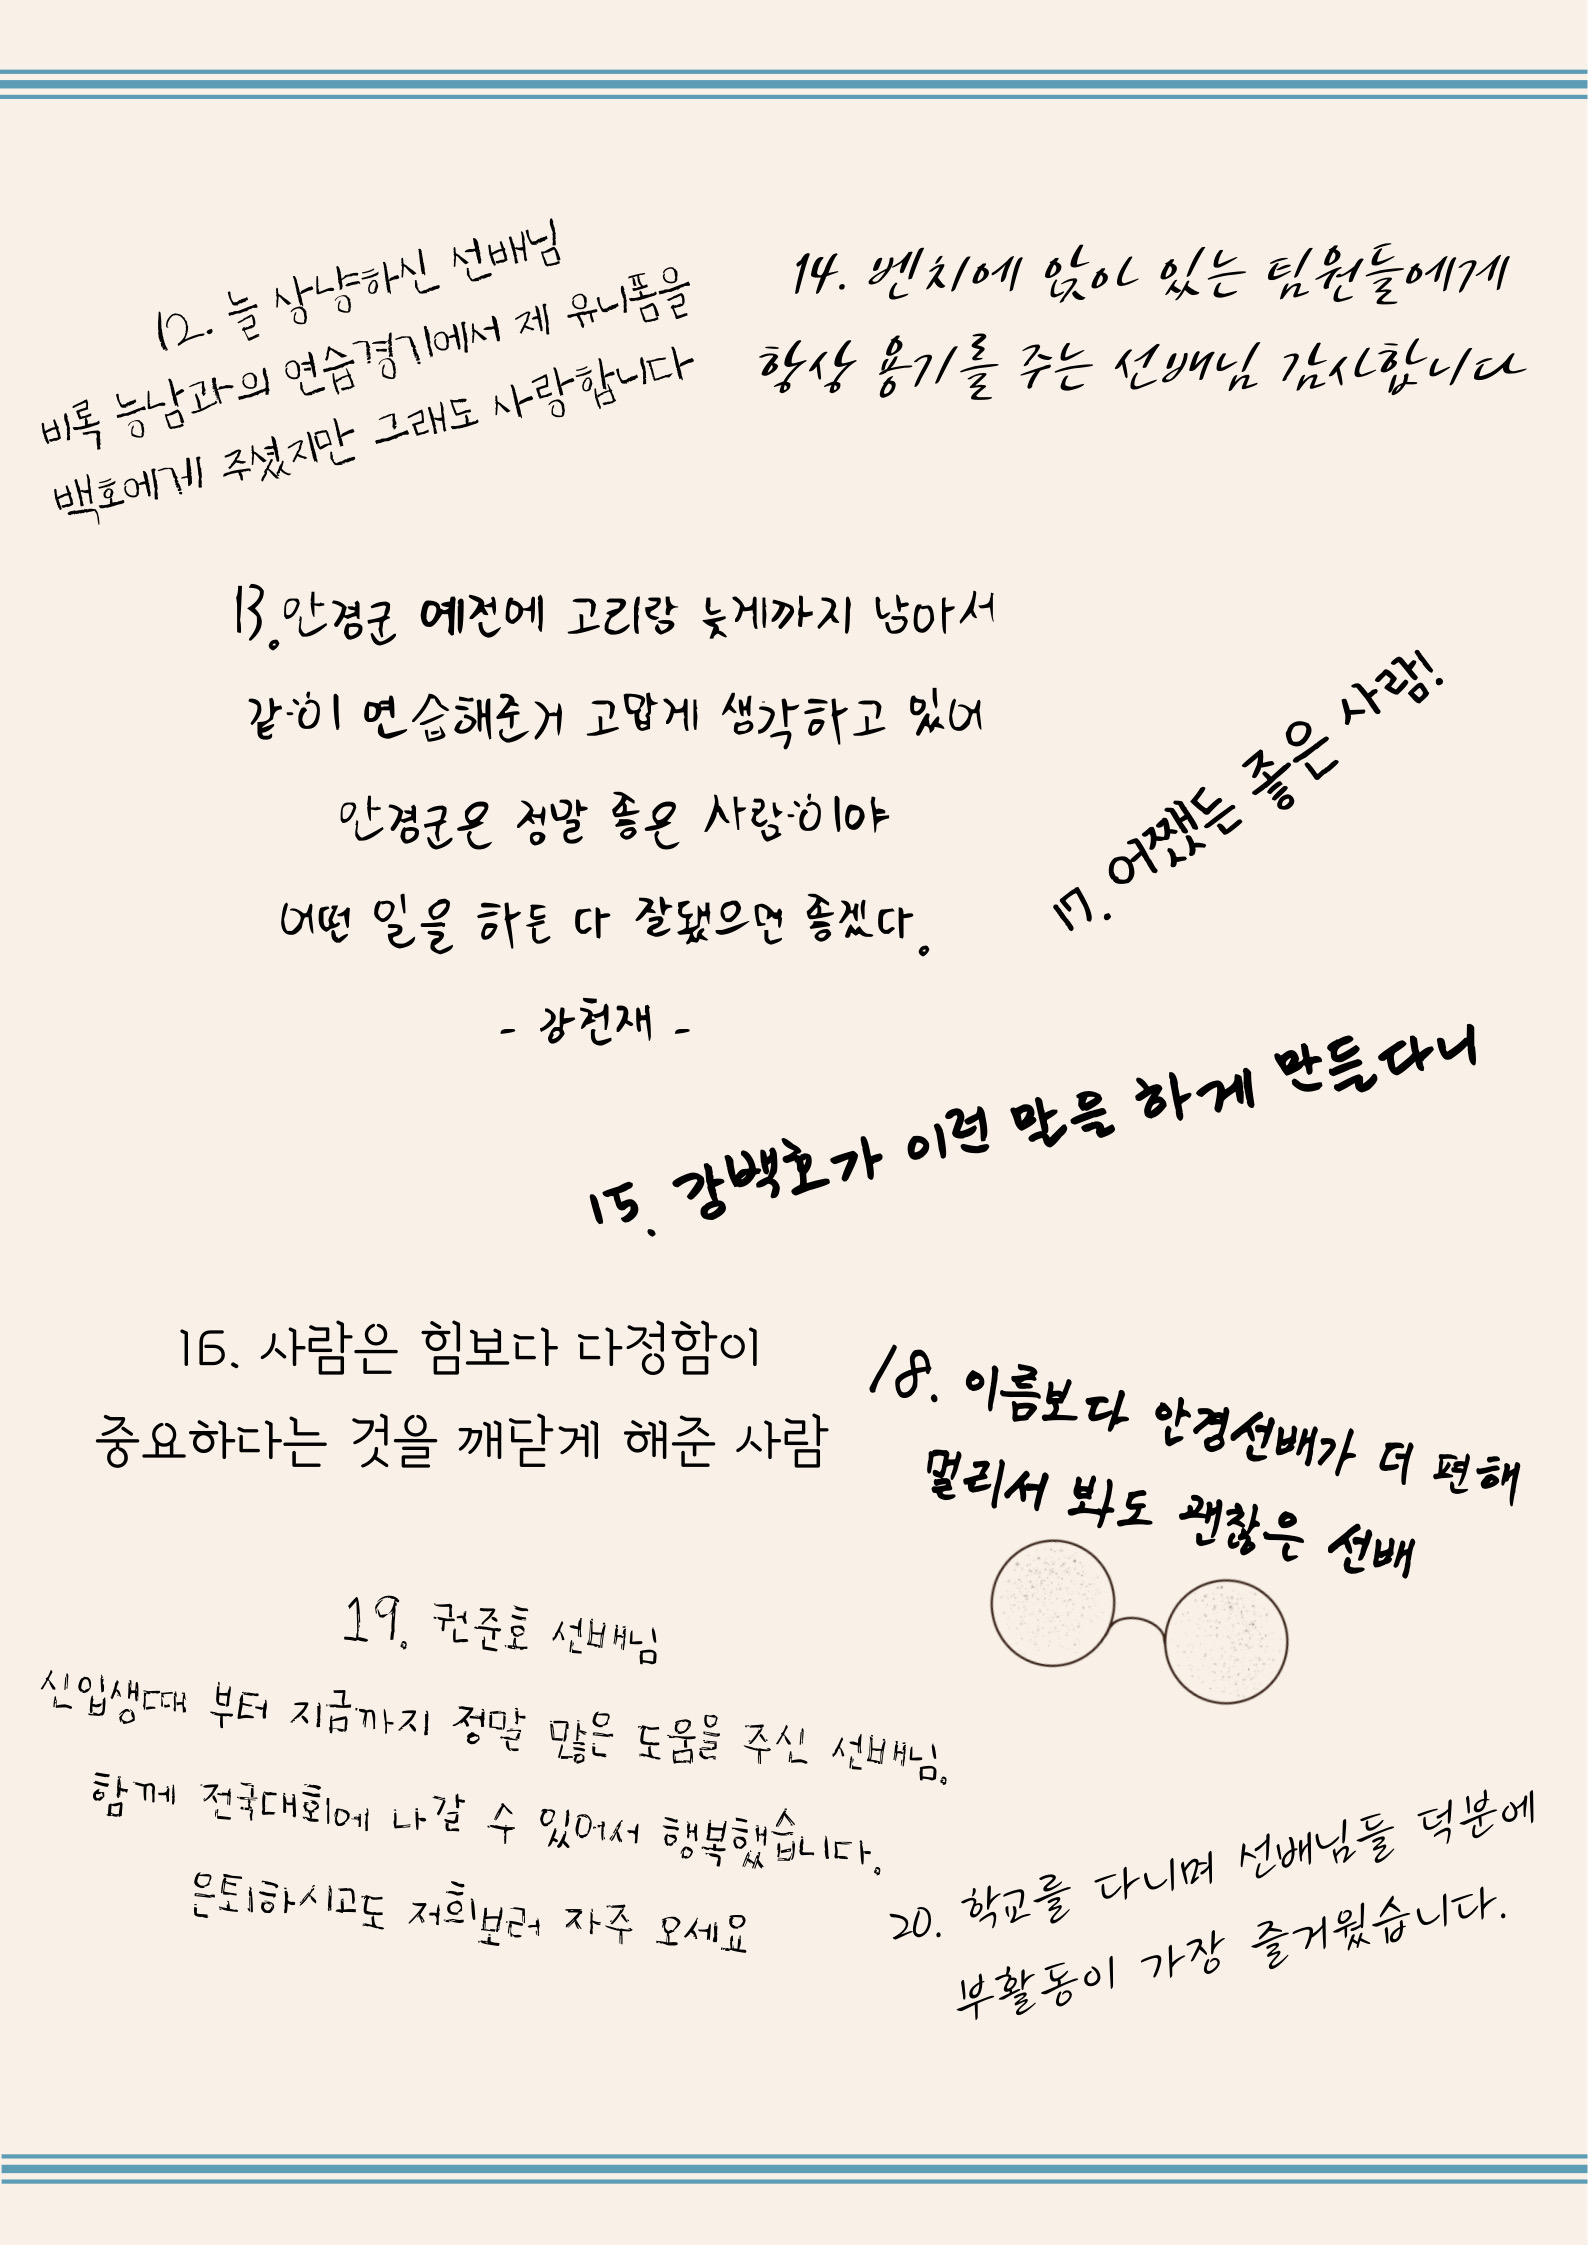 12. 늘 상냥하신 선배님
비록 능남과의 연습경기에서 제 유니폼을
백호에게 주셨지만 그래도 사랑합니다
14. 벤치에 앉아 있는 팀원들에게
항상 용기를 주는 선배님 감사합니다
13. 안경군 예전에 고리랑 늦게까지 남아서
같이 연습해준거 고맙게 생각하고 있어
안경군은 정말 좋은 사람이야
어떤 일을 하든 다 잘됐으면 좋겠다.
- 강천재 -
17. 어쨌든 좋은 사람!
15. 강백호가 이런 말을 하게 만들다니
16. 사람은 힘보다 다정함이
중요하다는 것을 깨닫게 해준 사람
18. 이름보다 안경선배가 더 편해
멀리서 봐도 괜찮은 선배
19. 권준호 선배님
신입생때 부터 지금까지 정말 많은 도움을 주신 선배님.
함께 전국대회에 나갈 수 있어서 행복했습니다.
은퇴하시고도 저희보러 자주 오세요
20. 학교를 다니며 선배님들 덕분에
부활동이 가장 즐거웠습니다.